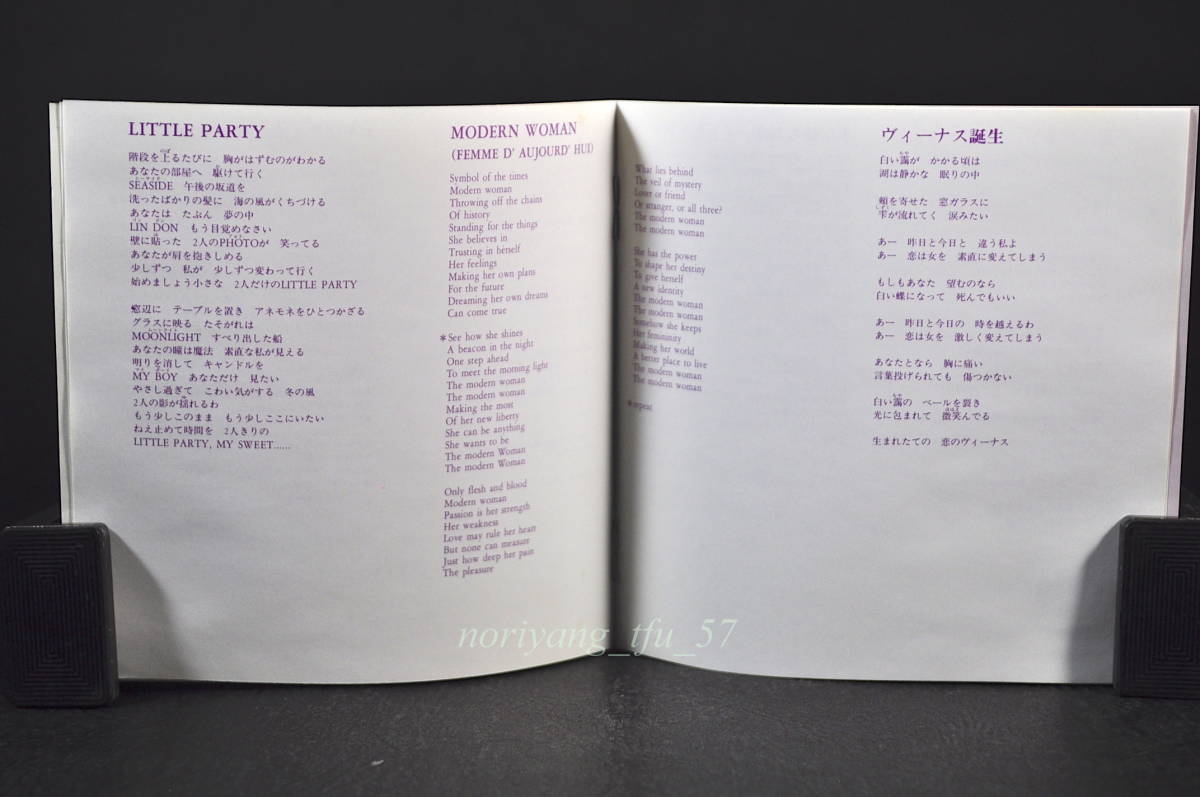 LITTLE PARTY
階段を上るたびに 胸がはずむのがわかる
あなたの部屋へ 駆けて行く
SEASIDE 午後の坂道を
洗ったばかりの髪に 海の風がくちづける
あなたは たぶん 夢の中
LIN DON もう目覚めなさい
壁に貼った 2人のPHOTOが 笑ってる
あなたが肩を抱きしめる
少しずつ 私が 少しずつ変わって行く
始めましょう小さな 2人だけのLITTLE PARTY
窓辺に テーブルを置き アネモネをひとつかざる
グラスに映る たそがれは
MOONLIGHT すべり出した船
あなたの瞳は魔法 素直な私が見える
明りを消して キャンドルを
MY BOY あなただけ 見たい
やさし過ぎて こわい気がする 冬の風
2人の影が揺れるわ
もう少しこのまま もう少しここにいたい
ねえ止めて時間を 2人きりの
LITTLE PARTY, MY SWEET......
MODERN WOMAN
(FEMME D' AUJOURD' HUI)
Symbol of the times
Modern woman
Throwing off the chains
Of history
Standing for the things
She believes in
Trusting in herself
Her feelings
Making her own plans
For the future
Dreaming her own dreams
Can come true
*See how she shines
A beacon in the night
One step ahead
To meet the morning light
The modern woman
The modern woman
Making the most
Of her new liberty
She can be anything
She wants to be
The modern Woman
The modern Woman
Only flesh and blood
Modern woman
Passion is her strength
Her weakness
Love may rule her heart
But none can measure
Just how deep her pain
The pleasure
What lies behind
The veil of mystery
Lover or friend
Or stranger, or all three?
The modern woman
The modern woman
She has the power
To shape her destiny
To give herself
A new identity
The modern woman
The modern woman
Somehow she keeps
Her femininity
Making her world
A better place to live
The modern woman
The modern woman
*repeat
ヴィーナス誕生
白い靄が かかる頃は
湖は静かな 眠りの中
頬を寄せた 窓ガラスに
雫が流れてく 涙みたい
あー 昨日と今日と 違う私よ
あー 恋は女を 素直に変えてしまう
もしもあなた 望むのなら
白い蝶になって 死んでもいい
あー 昨日と今日の 時を越えるわ
あー 恋は女を 激しく変えてしまう
あなたとなら 胸に痛い
言葉投げられても 傷つかない
白い靄の ベールを裂き
光に包まれて 微笑んでる
生まれたての 恋のヴィーナス
noriyang_tfu_57